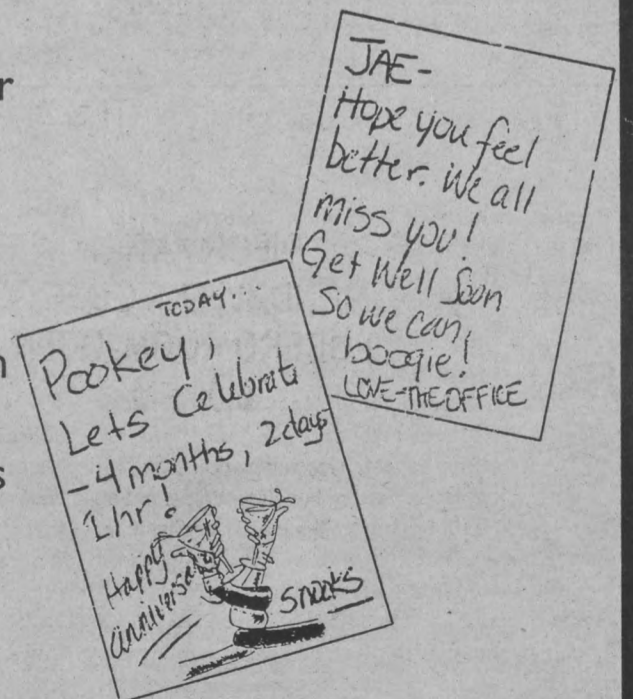 JAE-
Hope you feel
better. We all
miss you!
Get Well Soon
So we can
boogie!
LOVE-THE OFFICE
TODAY...
Pookey,
Lets Celebrate
-4 months, 2 days
1hr!
Happy
anniversary
snooks